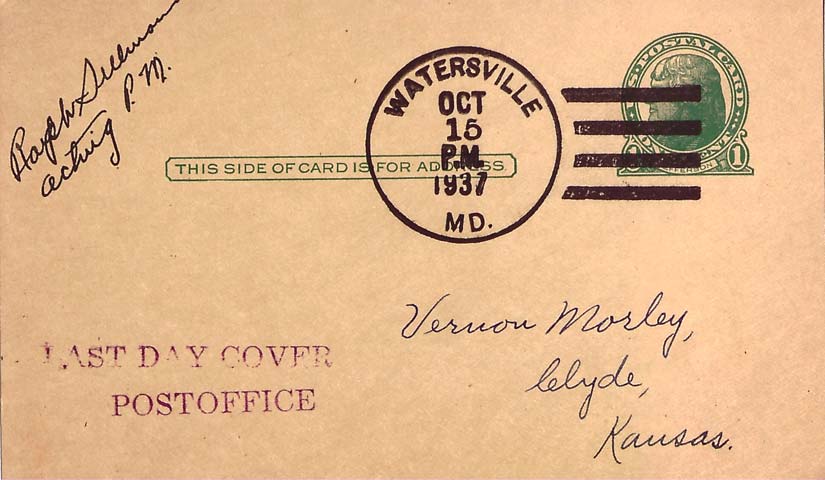 Ralph Sullman
acting P.M.
U.S. POSTAL CARD
ONE CENT
1
JEFFERSON
WATERSVILLE
OCT
15
P.M.
1937
MD.
THIS SIDE OF CARD IS FOR ADDRESS.
Vernon Morley,
Clyde,
Kansas.
LAST DAY COVER
POSTOFFICE